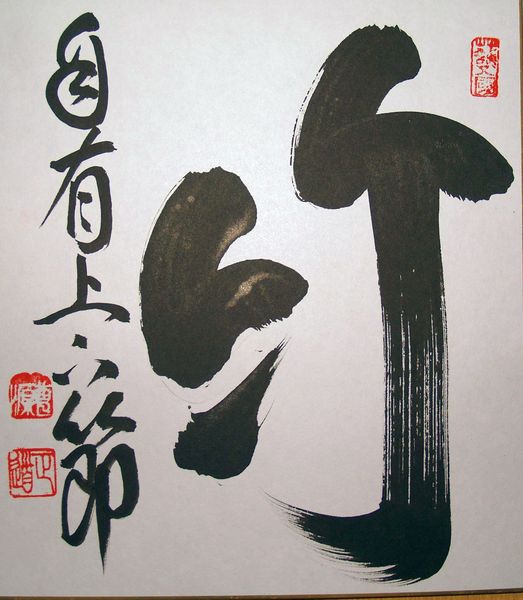 竹
自有上下節